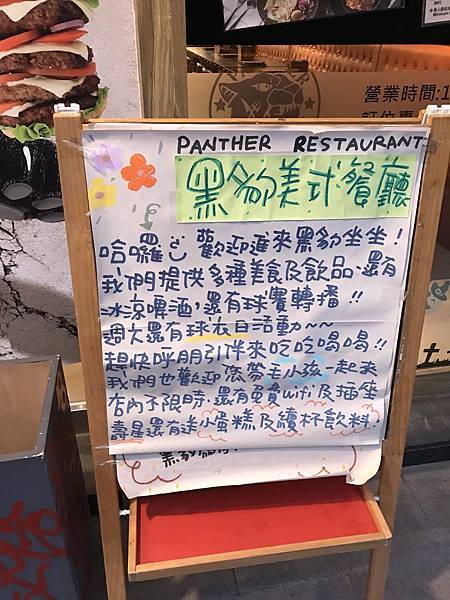 PANTHER RESTAURANT
黑豹美式餐廳
哈囉 歡迎進來黑豹坐坐！
我們提供多種美食及飲品、還有
冰涼啤酒，還有球賽轉播！！
週六還有球衣日活動~~
趕快呼朋引伴來吃吃喝喝！！
我們也歡迎您帶毛小孩一起來
店內不限時、還有免費wifi及插座
壽星還有送小蛋糕及續杯飲料！
營業時間:1